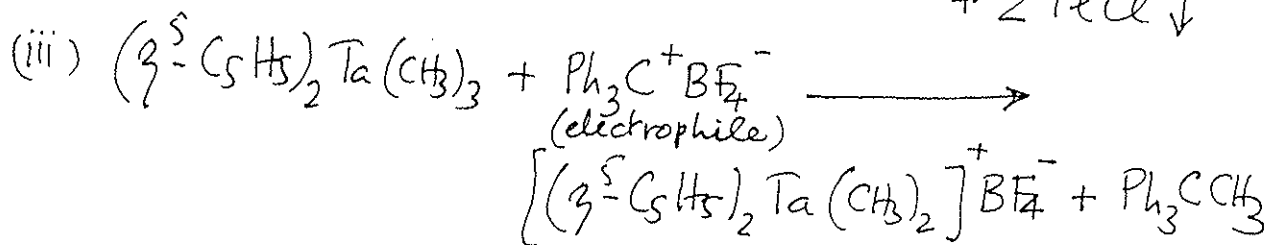 + 2 TlCl ↓
(iii) (η⁵-C₅H₅)₂Ta(CH₃)₃ + Ph₃C⁺BF₄⁻ ⟶
(electrophile)
[(η⁵-C₅H₅)₂Ta(CH₃)₂]⁺BF₄⁻ + Ph₃CCH₃